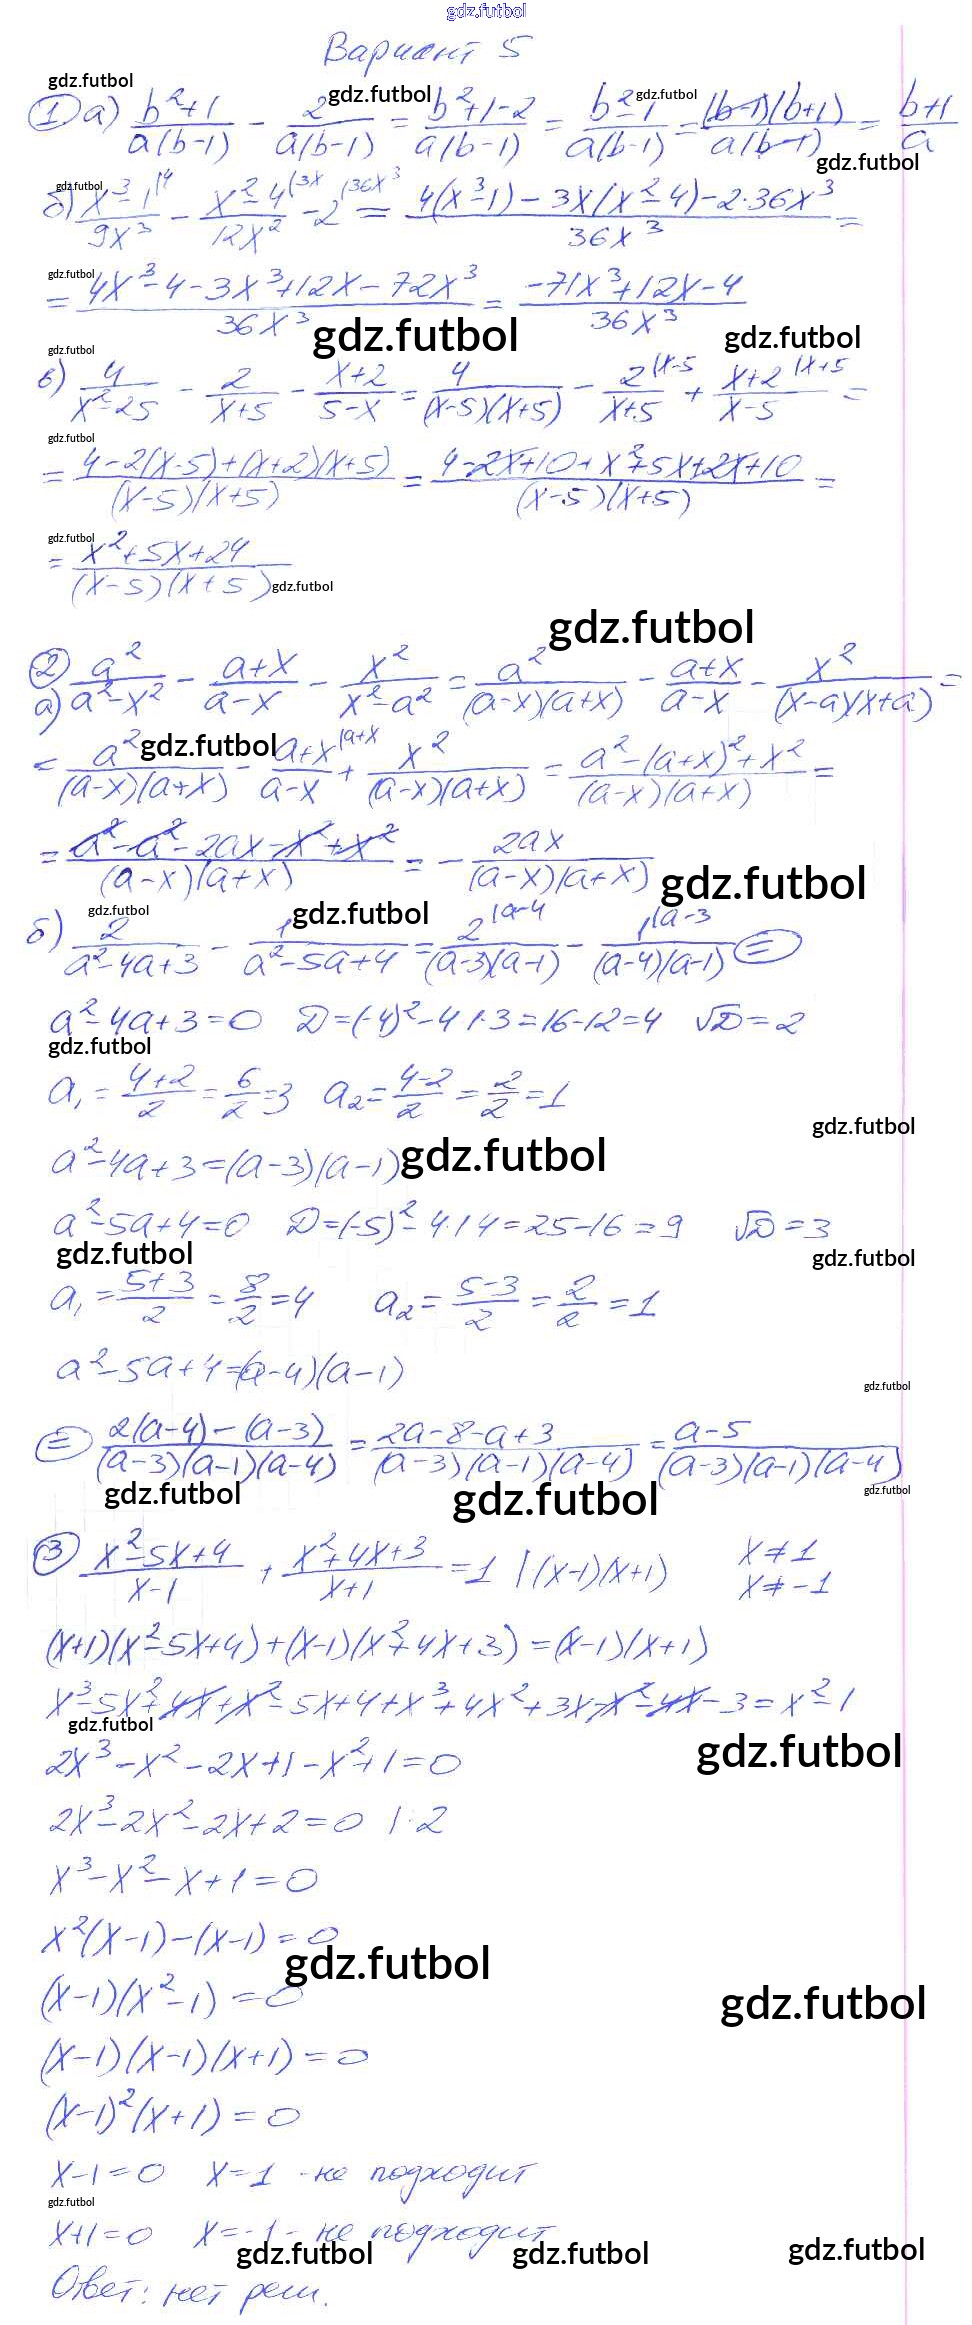 gdz.futbol
Вариант 5
gdz.futbol gdz.futbol gdz.futbol
① а) (b²+1)/(a(b-1)) - 2/(a(b-1)) = (b²+1-2)/(a(b-1)) = (b²-1)/(a(b-1)) = ((b-1)(b+1))/(a(b-1)) = (b+1)/a
gdz.futbol
gdz.futbol
б) (x³-1)/(9x³) |4 - (x²-4)/(12x²) |3x - 2 |36x³ = (4(x³-1) - 3x(x²-4) - 2·36x³)/(36x³) =
gdz.futbol
= (4x³-4-3x³+12x-72x³)/(36x³) = (-71x³+12x-4)/(36x³)
gdz.futbol gdz.futbol
gdz.futbol
в) 4/(x²-25) - 2/(x+5) - (x+2)/(5-x) = 4/((x-5)(x+5)) - 2/(x+5) |x-5 + (x+2)/(x-5) |x+5 =
gdz.futbol
= (4-2(x-5)+(x+2)(x+5))/((x-5)(x+5)) = (4-2x+10+x²+5x+2x+10)/((x-5)(x+5)) =
gdz.futbol
= (x²+5x+24)/((x-5)(x+5))
gdz.futbol
gdz.futbol
② а) a²/(a²-x²) - (a+x)/(a-x) - x²/(x²-a²) = a²/((a-x)(a+x)) - (a+x)/(a-x) - x²/((x-a)(x+a)) =
gdz.futbol
= a²/((a-x)(a+x)) - (a+x)/(a-x) |a+x + x²/((a-x)(a+x)) = (a²-(a+x)²+x²)/((a-x)(a+x)) =
= (a²-a²-2ax-x²+x²)/((a-x)(a+x)) = - 2ax/((a-x)(a+x))
gdz.futbol
gdz.futbol gdz.futbol
б) 2/(a²-4a+3) - 1/(a²-5a+4) = 2/((a-3)(a-1)) |a-4 - 1/((a-4)(a-1)) |a-3 ⊜
a²-4a+3=0 D=(-4)²-4·1·3=16-12=4 √D=2
gdz.futbol
a₁ = (4+2)/2 = 6/2 = 3 a₂ = (4-2)/2 = 2/2 = 1
gdz.futbol
a²-4a+3=(a-3)(a-1)
gdz.futbol
a²-5a+4=0 D=(-5)²-4·1·4=25-16=9 √D=3
gdz.futbol gdz.futbol
a₁ = (5+3)/2 = 8/2 = 4 a₂ = (5-3)/2 = 2/2 = 1
a²-5a+4=(a-4)(a-1)
gdz.futbol
⊜ (2(a-4)-(a-3))/((a-3)(a-1)(a-4)) = (2a-8-a+3)/((a-3)(a-1)(a-4)) = (a-5)/((a-3)(a-1)(a-4))
gdz.futbol gdz.futbol gdz.futbol
③ (x²-5x+4)/(x-1) + (x²+4x+3)/(x+1) = 1 |(x-1)(x+1) x≠1
x≠-1
(x+1)(x²-5x+4)+(x-1)(x²+4x+3)=(x-1)(x+1)
x³-5x²+4x+x²-5x+4+x³+4x²+3x-x²-4x-3=x²-1
gdz.futbol gdz.futbol
2x³-x²-2x+1-x²+1=0
2x³-2x²-2x+2=0 |:2
x³-x²-x+1=0
x²(x-1)-(x-1)=0
gdz.futbol
(x-1)(x²-1)=0
gdz.futbol
(x-1)(x-1)(x+1)=0
(x-1)²(x+1)=0
x-1=0 x=1 - не подходит
gdz.futbol
x+1=0 x=-1 - не подходит
gdz.futbol gdz.futbol gdz.futbol
Ответ: нет реш.